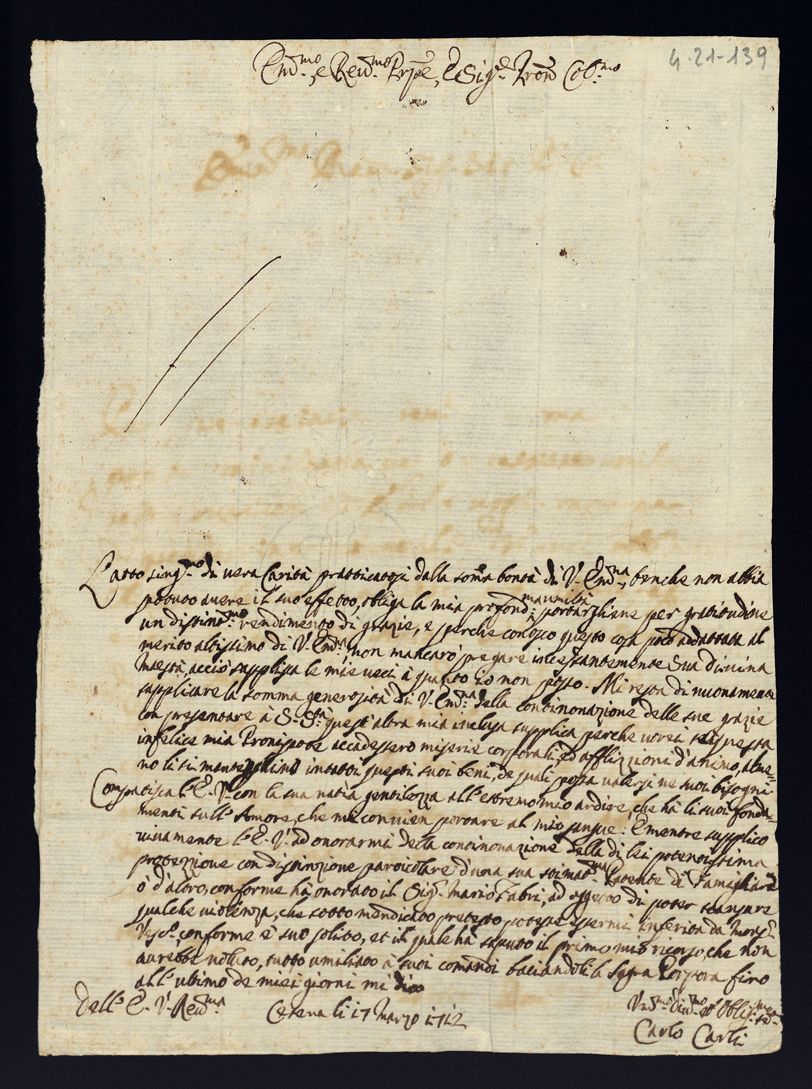 4-21-139
Em.mo, e Rev.mo Prpe, e Sig.e Pron Col.mo
L'atto sing.mo di vera Carità pratticatoci dalla soma bontà di V. Em.na, benche non abbia
potuto avere il suo effetto, obliga la mia profond.a portargliene per gratitudine
un distint.mo rendimento di grazie, e perche conosco questo cosa poco addattata al
merito altissimo di V. Em.a non mancarò pregare incessantemente Sua Divina
Maestà acciò supplisca le mie veci à quanto Io non posso. Mi resta di nuovamente
supplicare la somma generosità di V. Em.na della continovazione delle sue grazie
con presentare à S. S.tà quest'altra mia inclusa supplica perche vorei se à questa
infelice mia Pronipote accadessero miserie corporali, ed afflizzioni d'animo, alme-
no li si mantenghino intatti questi suoi beni, de quali possa valersi ne suoi bisogni.
Compatisca l'E. V. con la sua natia gentilezza all'estremo mio ardire, che hà li suoi fonda-
menti sull'Amore, che me convien portare al mio sangue. E mentre supplico
vivamente l'E. V. ad onorarmi della continovazione della di lei potentissima
protezzione con distinzione particolare d'una sua stimat.ma Patente di Famigliare
ò d'altro, conforme hà onorato il Sig.r Mario Fabri, ad effetto di poter scansare
qualche violenza, che sotto mendicato pretesto potesse essermi inferita da
Vesc.o, conforme è suo solito, et il quale hà saputo il primo mio ricorso, che non
aurebbe voluto, tutto umiliato a suoi comandi baciandoli la Sagra Porpora fino
all'ultimo de miei giorni mi dico
Dell'E. V. Rev.ma
Cesena li 17 Marzo 1712
Carlo Carli